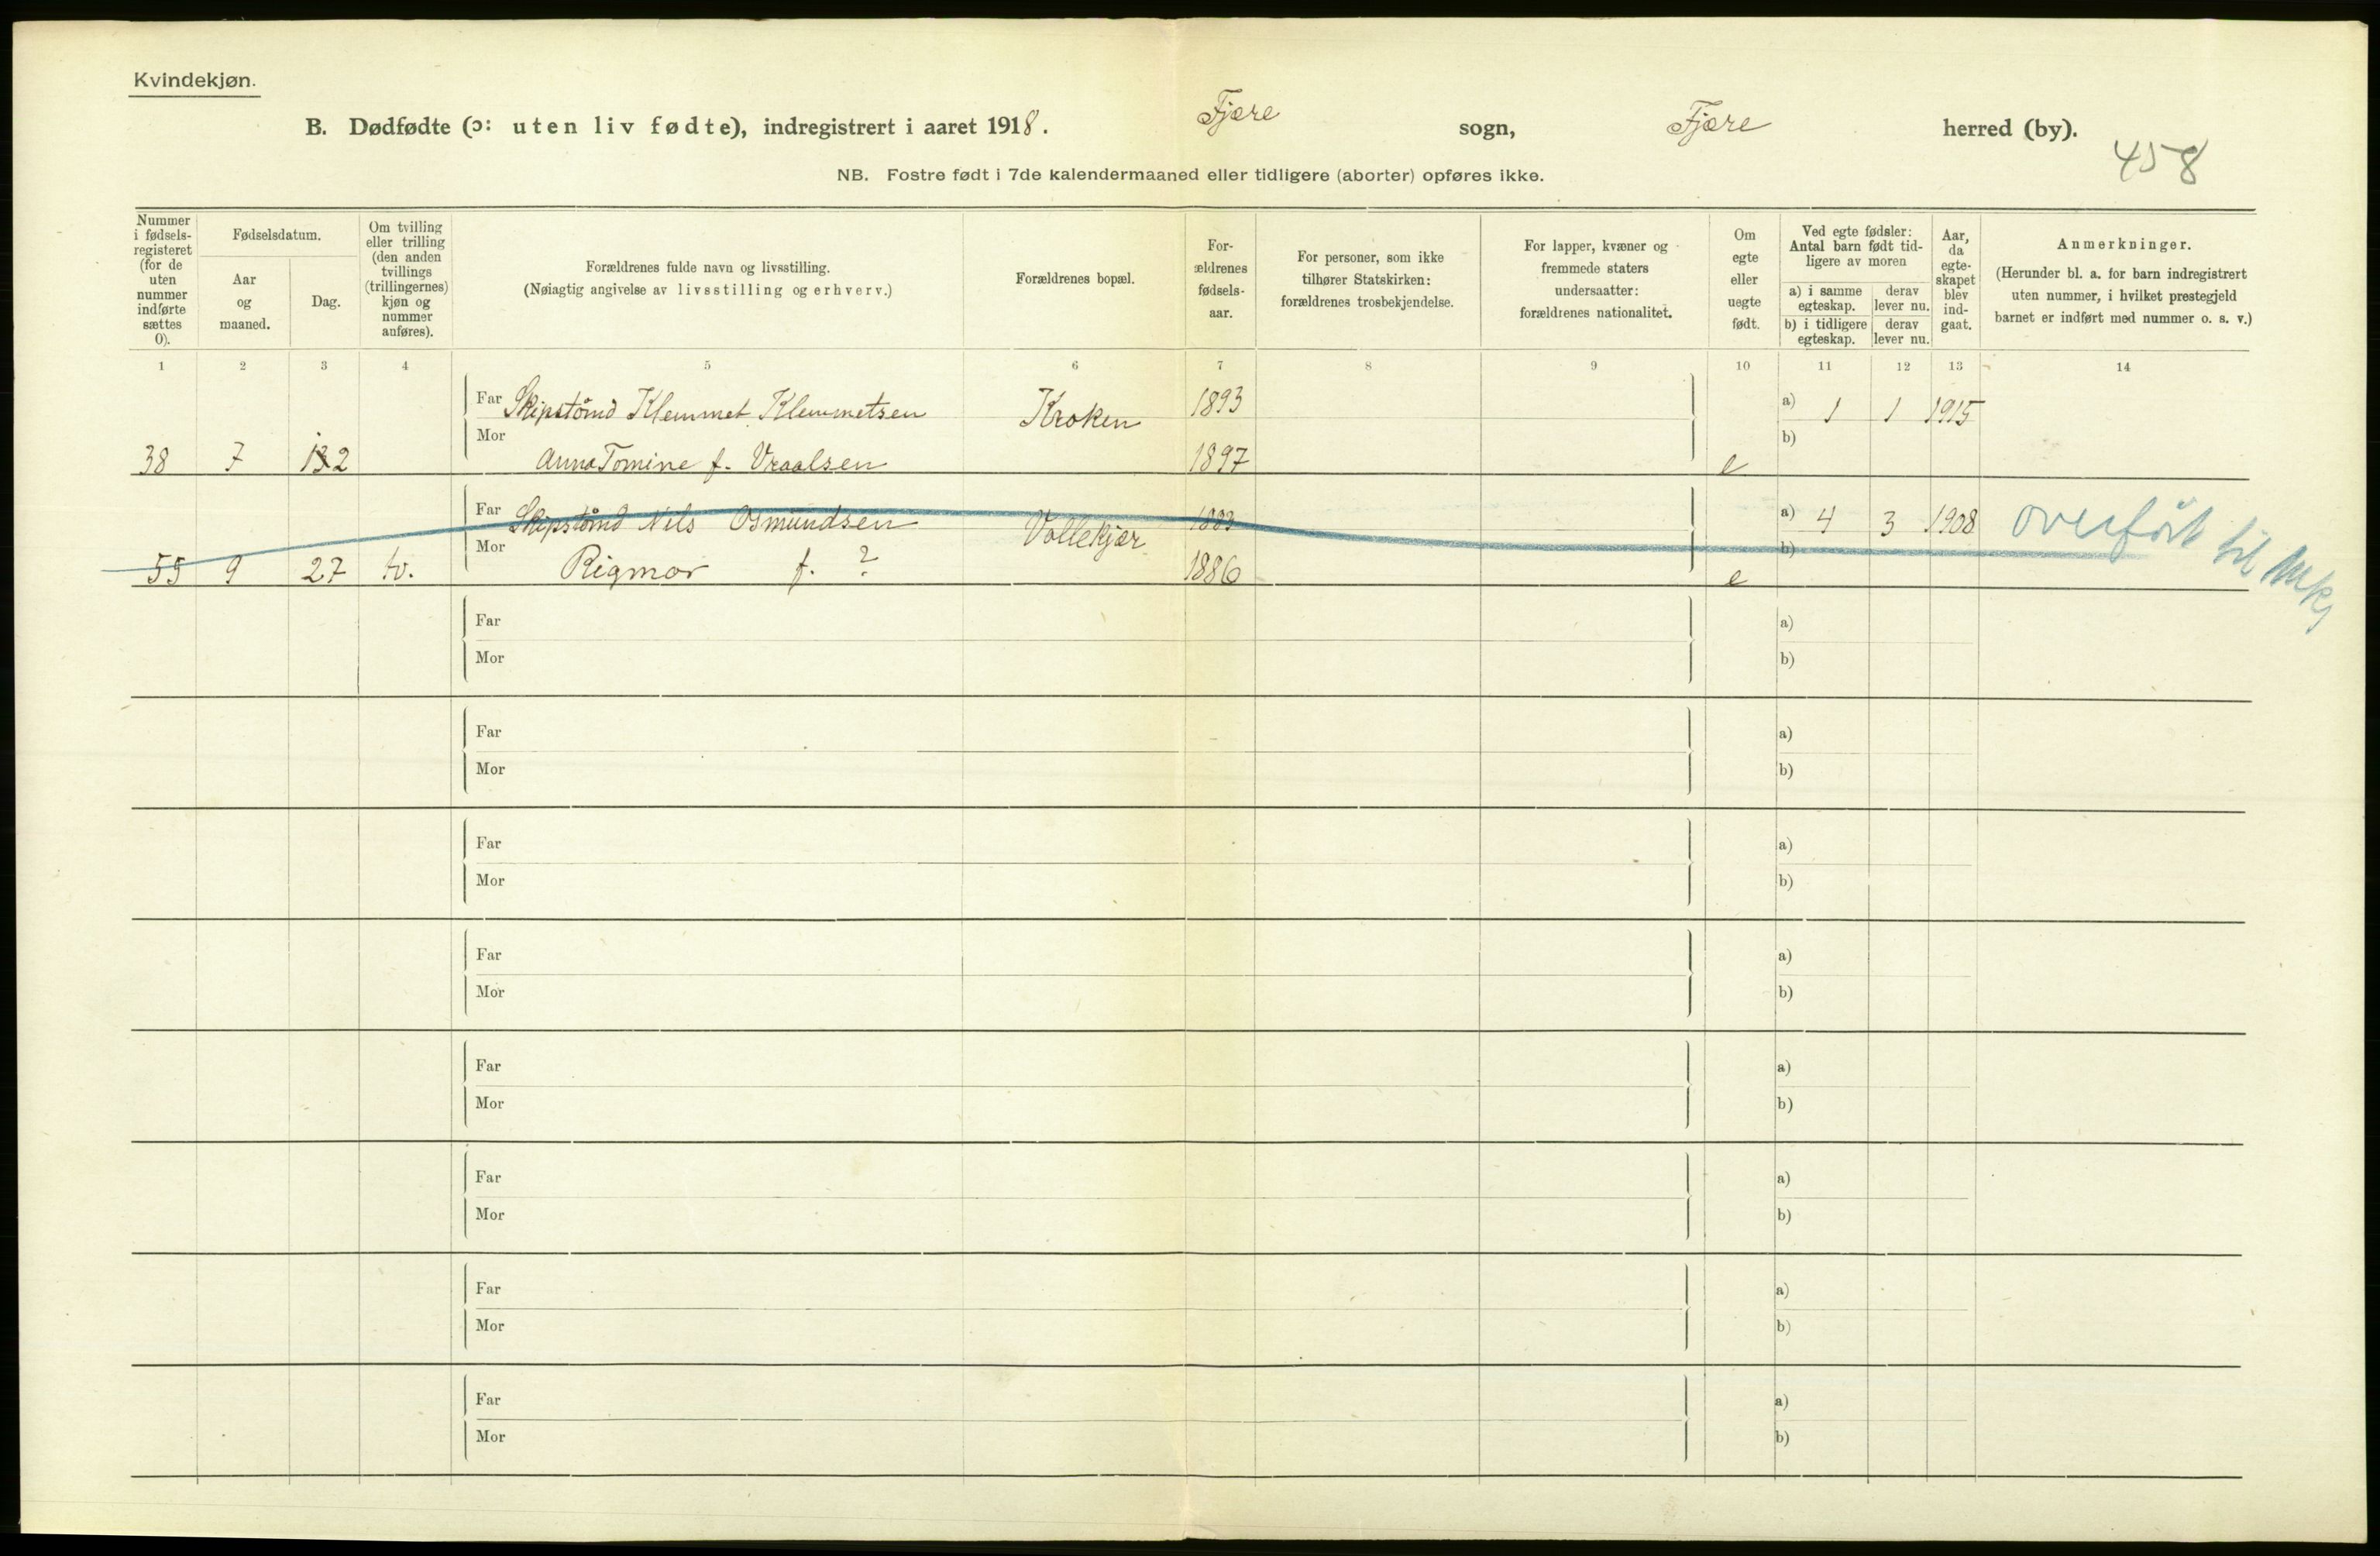 Kvindekjøn.
B. Dødfødte (ɔ: uten liv fødte), indregistrert i aaret 1918. Fjære sogn, Fjære herred (by).
458
NB. Fostre født i 7de kalendermaaned eller tidligere (aborter) opføres ikke.
Nummer i fødsels-registeret (for de uten nummer indførte sættes 0).
Fødselsdatum.
Aar og maaned.
Dag.
Om tvilling eller trilling (den anden tvillings (trillingernes) kjøn og nummer anføres).
Forældrenes fulde navn og livsstilling.
(Nøiagtig angivelse av livsstilling og erhverv.)
Forældrenes bopæl.
For-ældrenes fødsels-aar.
For personer, som ikke tilhører Statskirken: forældrenes trosbekjendelse.
For lapper, kvæner og fremmede staters undersaatter: forældrenes nationalitet.
Om egte eller uegte født.
Ved egte fødsler: Antal barn født tid-ligere av moren
a) i samme egteskap. derav lever nu.
b) i tidligere egteskap. derav lever nu.
Aar, da egte-skapet blev ind-gaat.
Anmerkninger.
(Herunder bl. a. for barn indregistrert uten nummer, i hvilket prestegjeld barnet er indført med nummer o. s. v.)
1 2 3 4 5 6 7 8 9 10 11 12 13 14
Far Skipstømd Klemmet Klemmetsen Kroken 1893 a) 1 1 1915
Mor b)
38 7 12 Anna Tomine f. Vraalsen 1897 e
Far Skipstømd Nils Osmundsen Vollekjær 1883 a) 4 3 1908 overført til
Mor b)
55 9 27 tv. Rigmor f. ? 1886 e
Far a)
Mor b)
Far a)
Mor b)
Far a)
Mor b)
Far a)
Mor b)
Far a)
Mor b)
Far a)
Mor b)
Far a)
Mor b)
Far a)
Mor b)